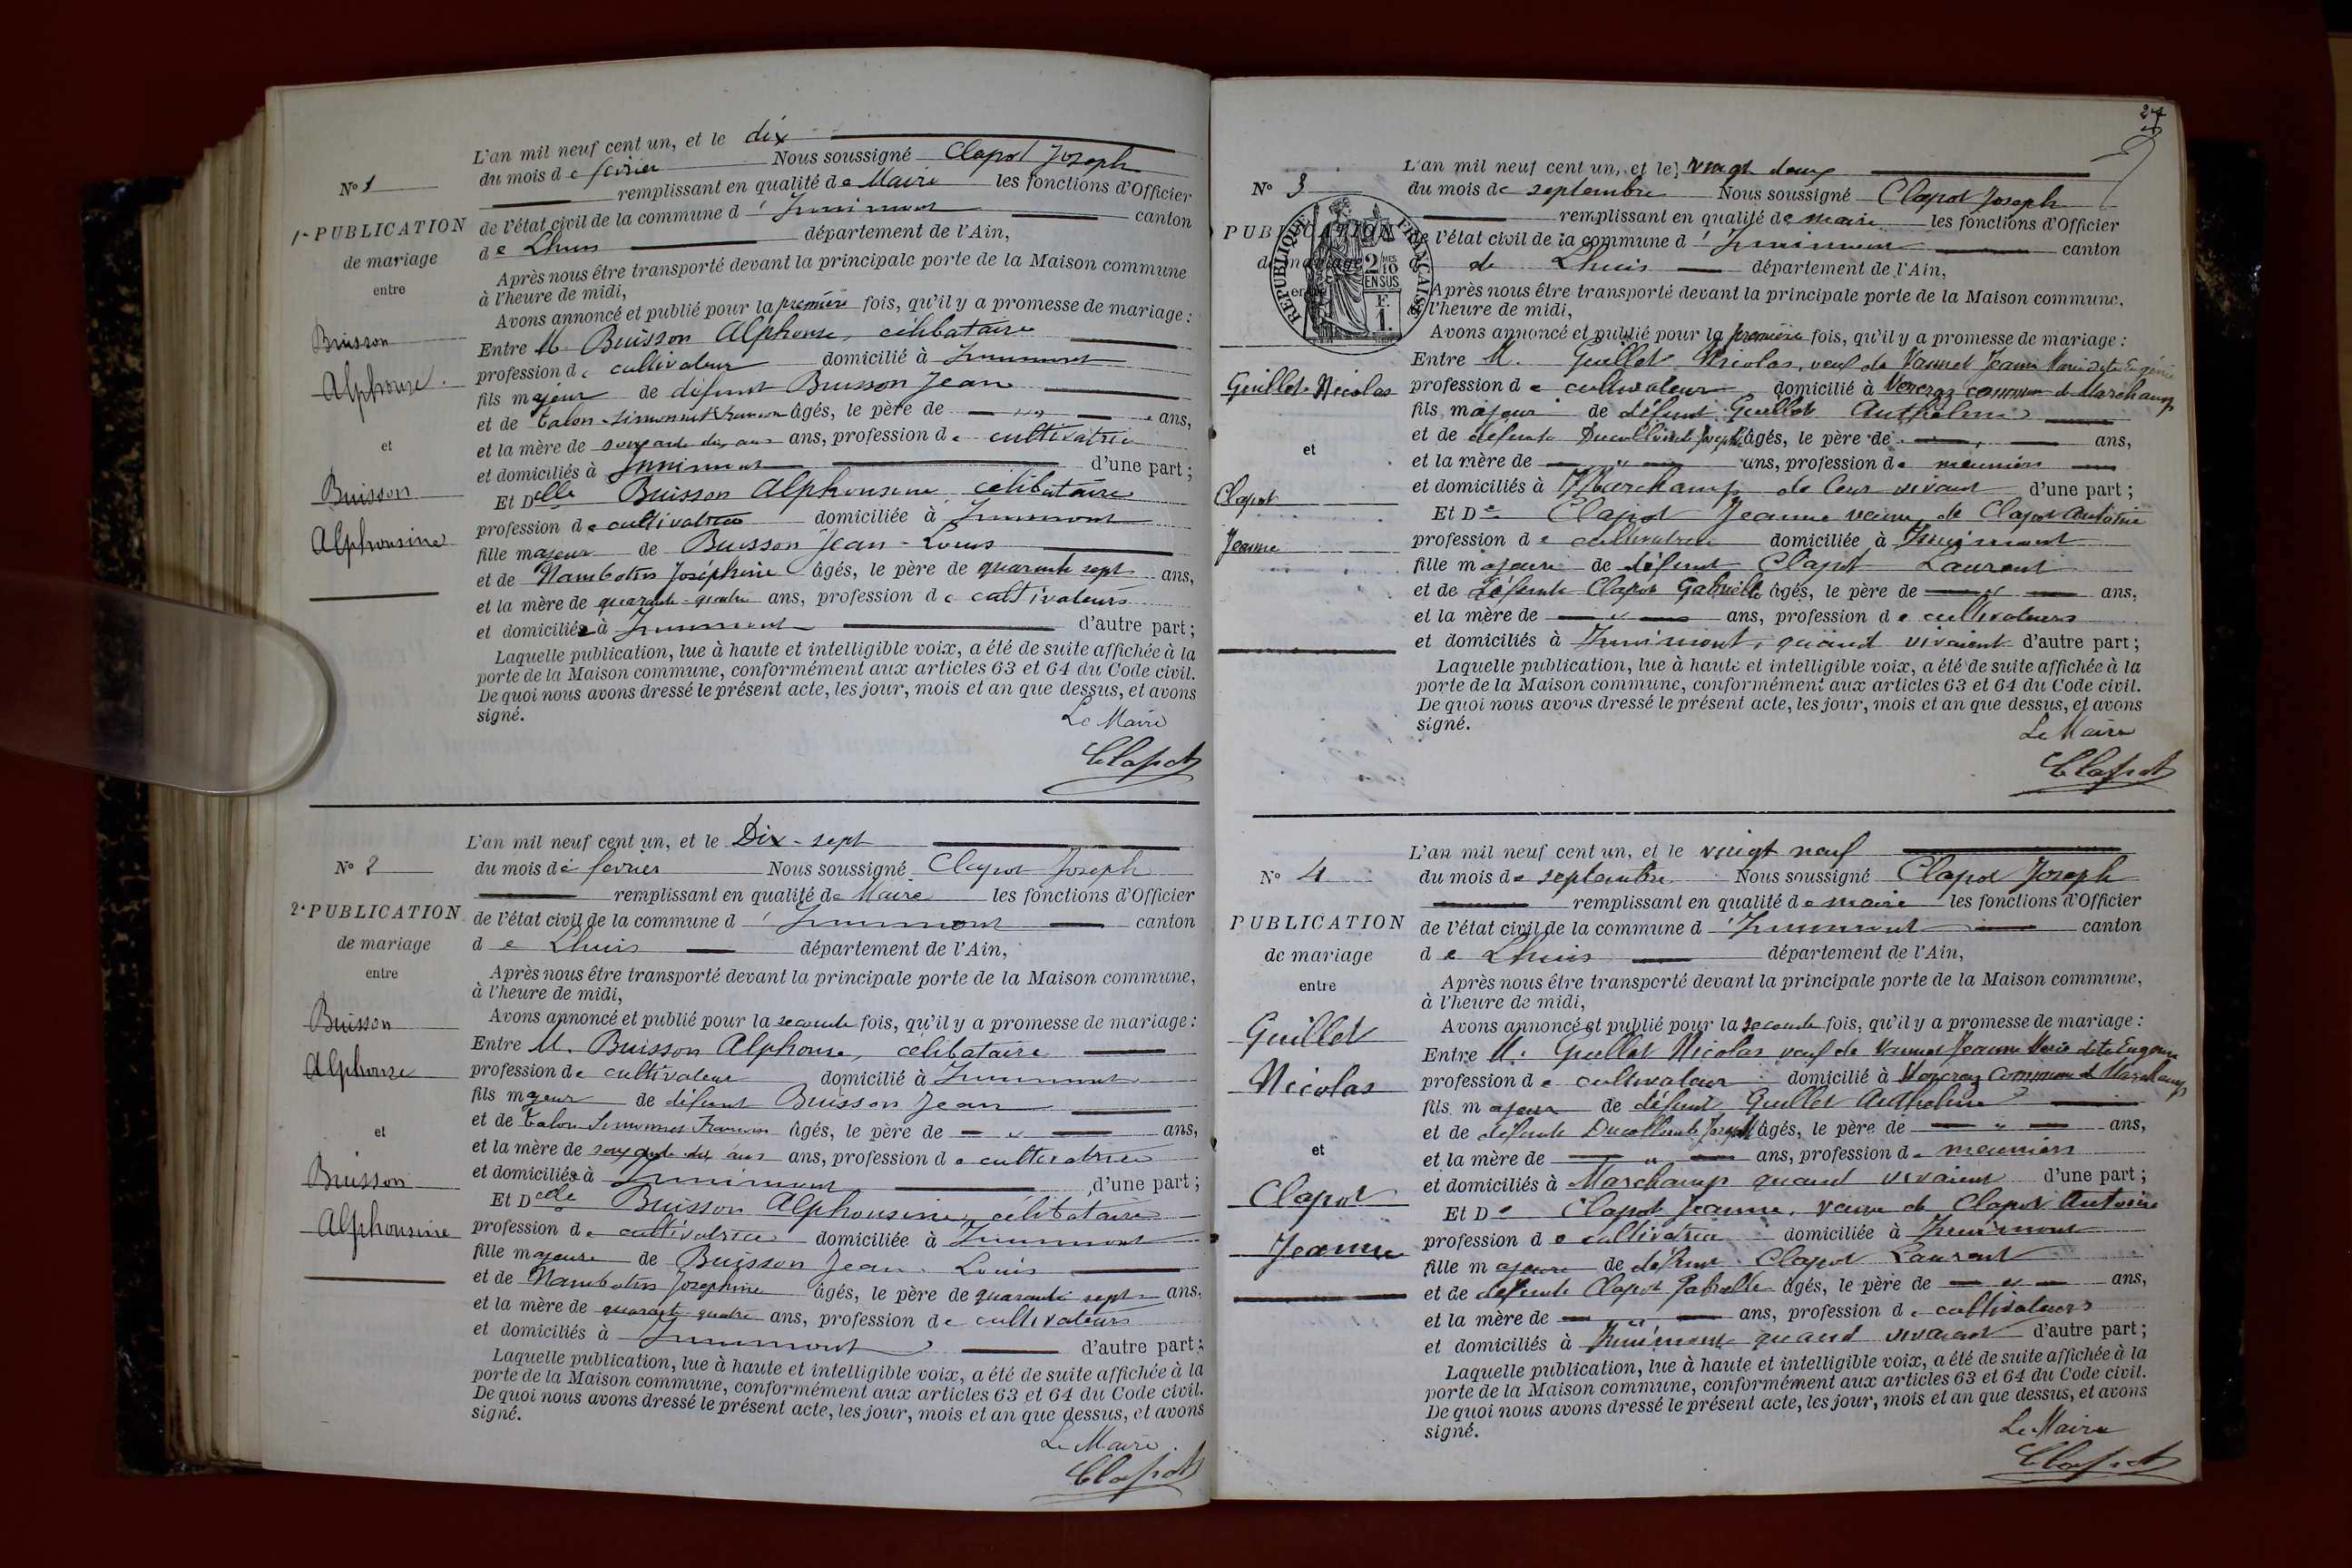 N° 1
1re PUBLICATION
de mariage
entre
Buisson
Alphonse
et
Buisson
Alphonsine
L'an mil neuf cent un, et le dix
du mois de fevrier Nous soussigné Clapot Joseph
remplissant en qualité de Maire les fonctions d'Officier
de l'état civil de la commune d'Innimont canton
de Lhuis département de l'Ain,
Après nous être transporté devant la principale porte de la Maison commune
à l'heure de midi,
Avons annoncé et publié pour la première fois, qu'il y a promesse de mariage :
Entre M. Buisson Alphonse, célibataire
profession de cultivateur domicilié à Innimont
fils majeur de défunt Buisson Jean
et de Talon-Simonnet âgés, le père de — " — ans,
et la mère de soixante dix ans ans, profession de cultivatrice
et domiciliés à Innimont d'une part ;
Et Delle Buisson Alphonsine célibataire
profession de cultivatrice domiciliée à Innimont
fille majeure de Buisson Jean-Louis
et de Nambotin Joséphine âgés, le père de quarante sept ans,
et la mère de quarante-quatre ans, profession de cultivateurs
et domiciliés à Innimont d'autre part ;
Laquelle publication, lue à haute et intelligible voix, a été de suite affichée à la
porte de la Maison commune, conformément aux articles 63 et 64 du Code civil.
De quoi nous avons dressé le présent acte, les jour, mois et an que dessus, et avons
signé.
Le Maire
Clapot
N° 2
2e PUBLICATION
de mariage
entre
Buisson
Alphonse
et
Buisson
Alphonsine
L'an mil neuf cent un, et le Dix-sept
du mois de fevrier Nous soussigné Clapot Joseph
remplissant en qualité de Maire les fonctions d'Officier
de l'état civil de la commune d'Innimont canton
de Lhuis département de l'Ain,
Après nous être transporté devant la principale porte de la Maison commune,
à l'heure de midi,
Avons annoncé et publié pour la seconde fois, qu'il y a promesse de mariage :
Entre M. Buisson Alphonse, célibataire
profession de cultivateur domicilié à Innimont
fils majeur de défunt Buisson Jean
et de Talon Simonnet Francoise âgés, le père de — " — ans,
et la mère de soixante dix ans ans, profession de cultivatrice
et domiciliés à Innimont d'une part ;
Et Delle Buisson Alphonsine, célibataire
profession de cultivatrice domiciliée à Innimont
fille majeure de Buisson Jean-Louis
et de Nambotin Josephine âgés, le père de quarante sept ans,
et la mère de quarante-quatre ans, profession de cultivateurs
et domiciliés à Innimont d'autre part ;
Laquelle publication, lue à haute et intelligible voix, a été de suite affichée à la
porte de la Maison commune, conformément aux articles 63 et 64 du Code civil.
De quoi nous avons dressé le présent acte, les jour, mois et an que dessus, et avons
signé.
Le Maire
Clapot
N° 3
PUBLICATION
de mariage
entre
Guillot Nicolas
et
Clapot
Jeanne
RÉPUBLIQUE FRANÇAISE
2/10
MES
EN SUS
F.
1.
L'an mil neuf cent un, et le vingt deux
du mois de septembre Nous soussigné Clapot Joseph
remplissant en qualité de maire les fonctions d'Officier
de l'état civil de la commune d'Innimont canton
de Lhuis département de l'Ain,
Après nous être transporté devant la principale porte de la Maison commune,
à l'heure de midi,
Avons annoncé et publié pour la première fois, qu'il y a promesse de mariage :
Entre M. Guillot Nicolas, veuf de Vannet Jeanne Marie dite Eugénie
profession de cultivateur domicilié à Vercraz commune de Marchamp
fils majeur de défunt Guillot Anthelme
et de défunte âgés, le père de — " — ans,
et la mère de — " — ans, profession de meuniers
et domiciliés à Marchamp de leur vivant d'une part ;
Et De Clapot Jeanne veuve de Clapot Antoine
profession de cultivatrice domiciliée à Innimont
fille majeure de défunt Clapot Laurent
et de défunte Clapot Gabrielle âgés, le père de — " — ans,
et la mère de — " — ans, profession de cultivateurs
et domiciliés à Innimont, quand vivaient d'autre part ;
Laquelle publication, lue à haute et intelligible voix, a été de suite affichée à la
porte de la Maison commune, conformément aux articles 63 et 64 du Code civil.
De quoi nous avons dressé le présent acte, les jour, mois et an que dessus, et avons
signé.
Le Maire
Clapot
N° 4
PUBLICATION
de mariage
entre
Guillot
Nicolas
et
Clapot
Jeanne
L'an mil neuf cent un, et le vingt neuf
du mois de septembre Nous soussigné Clapot Joseph
remplissant en qualité de maire les fonctions d'Officier
de l'état civil de la commune d'Innimont canton
de Lhuis département de l'Ain,
Après nous être transporté devant la principale porte de la Maison commune,
à l'heure de midi,
Avons annoncé et publié pour la seconde fois, qu'il y a promesse de mariage :
Entre M. Guillot Nicolas veuf de Vannet Jeanne Marie dite Eugénie
profession de cultivateur domicilié à Vercraz Commune de Marchamp
fils majeur de défunt Guillot Anthelme
et de défunte âgés, le père de — " — ans,
et la mère de — " — ans, profession de meuniers
et domiciliés à Marchamp quand vivaient d'une part ;
Et De Clapot Jeanne, veuve de Clapot Antoine
profession de cultivatrice domiciliée à Innimont
fille majeure de défunt Clapot Laurent
et de défunte Clapot Gabrielle âgés, le père de — " — ans,
et la mère de — " — ans, profession de cultivateurs
et domiciliés à Innimont quand vivaient d'autre part ;
Laquelle publication, lue à haute et intelligible voix, a été de suite affichée à la
porte de la Maison commune, conformément aux articles 63 et 64 du Code civil.
De quoi nous avons dressé le présent acte, les jour, mois et an que dessus, et avons
signé.
Le Maire
Clapot